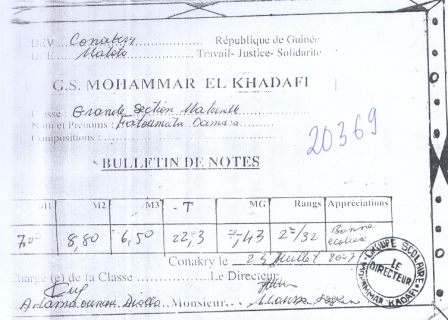 DEV Conakry République de Guinée
DCE Matoto Travail- Justice- Solidarité
G.S. MOHAMMAR EL KHADAFI
Classe : Grande Section Maternelle
Nom et Prénoms : Fatoumata Camara
Compositions :
20369
BULLETIN DE NOTES
M1 M2 M3 T MG Rangs Appréciations
7,00 8,80 6,50 22,3 7,43 2e/32 Bonne écolière
Conakry le Juillet
Chargé (e) de la Classe Le Directeur
Diallo Monsieur
GROUPE SCOLAIRE
LE DIRECTEUR
KADAFI